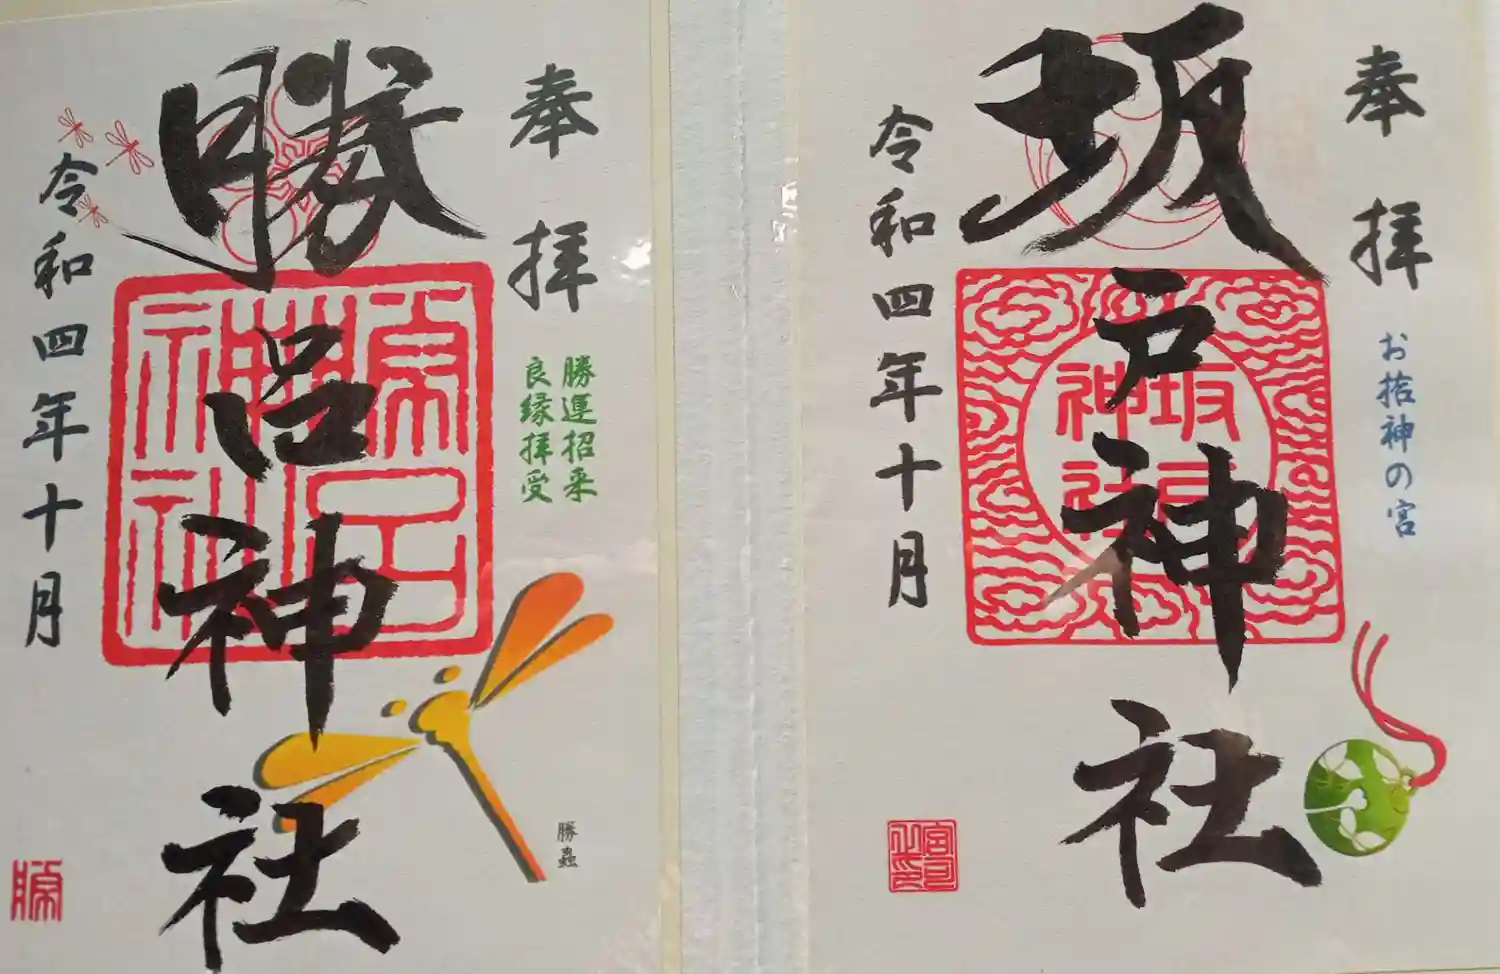 奉拝
神の宮
坂戸神社
坂戸神社
令和四年十月
奉拝
勝運招来
良縁拝受
勝呂神社
勝呂神社
令和四年十月
勝蟲